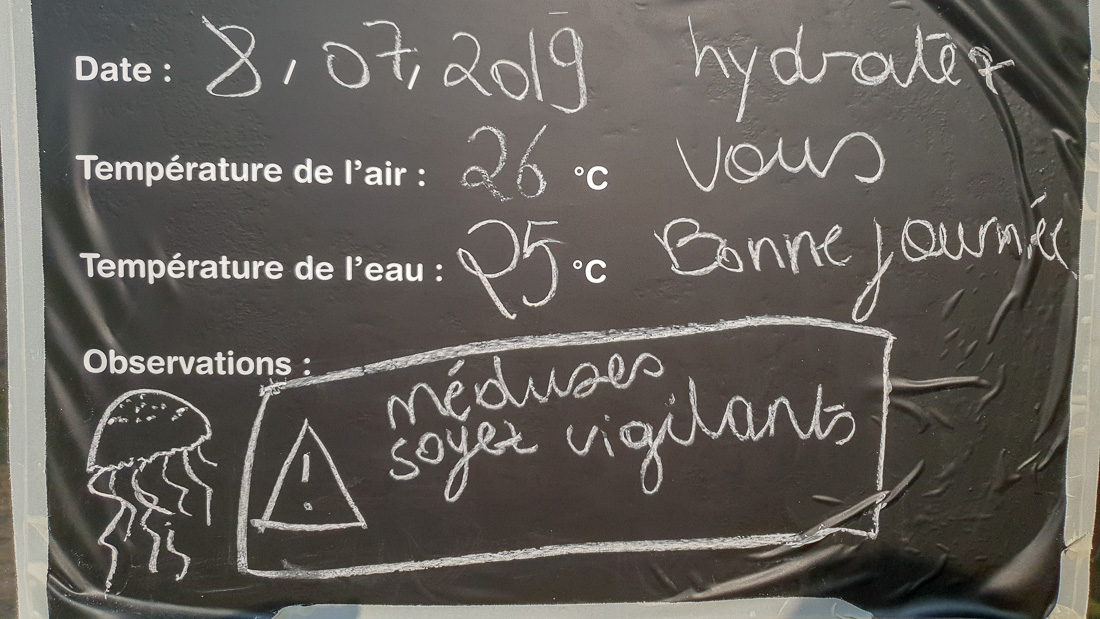 Date : 8, 07, 2019
hydratéz
Température de l'air : 26 °C
vous
Température de l'eau : 25 °C
Bonne journée
Observations :
méduses
soyez vigilants
!